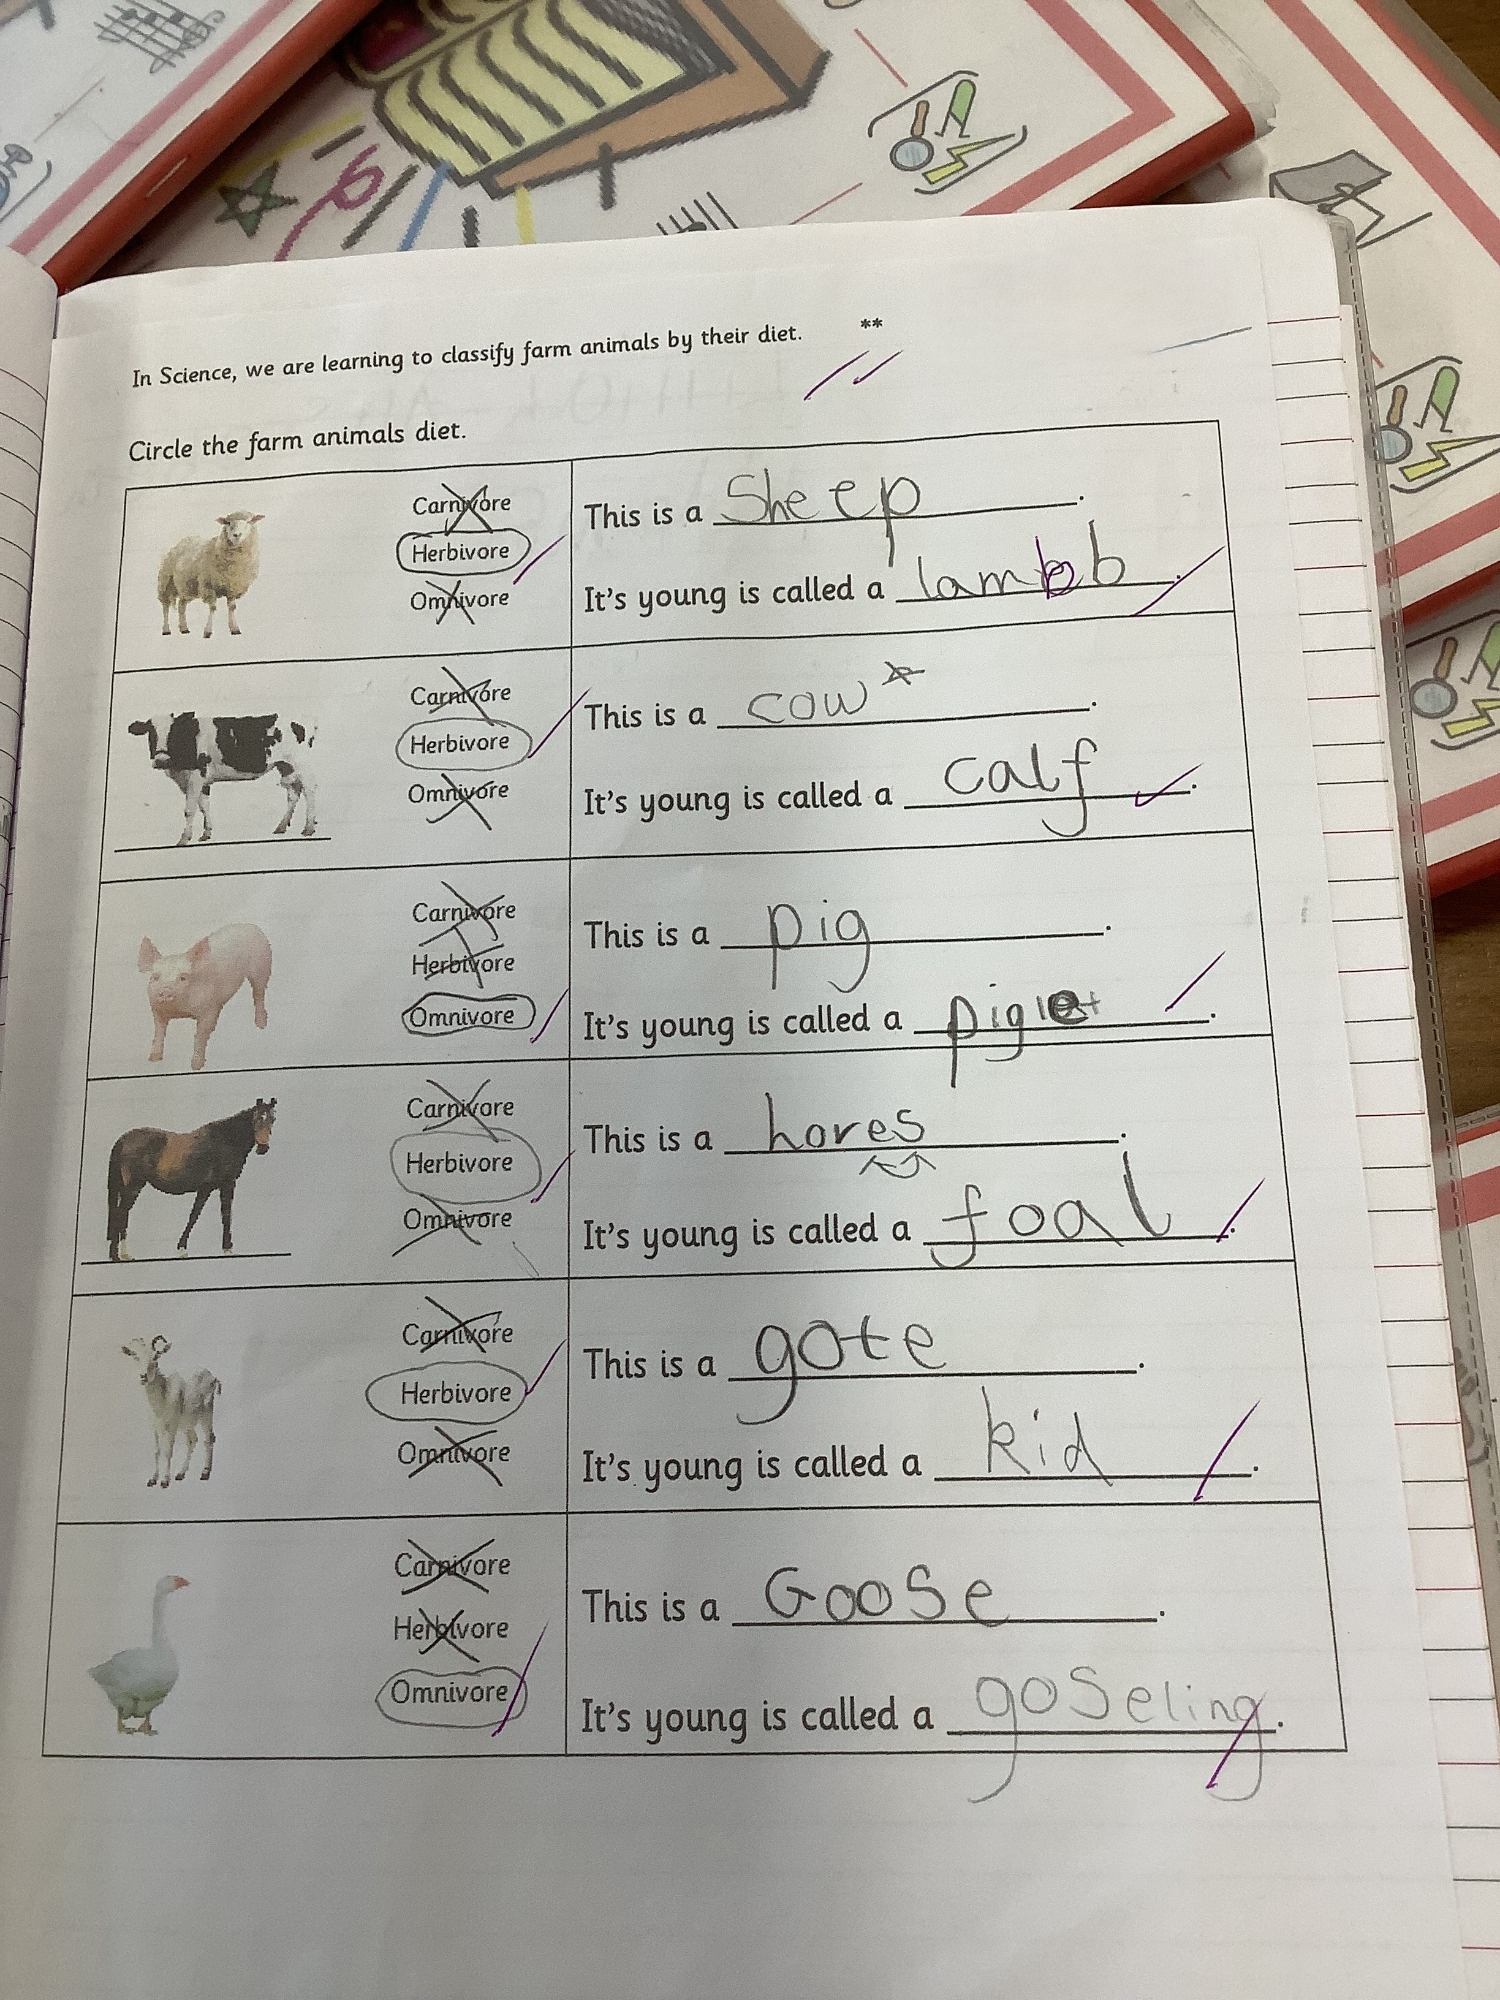 In Science, we are learning to classify farm animals by their diet. **
Circle the farm animals diet.
Carnivore
Herbivore
Omnivore
This is a Sheep.
It's young is called a lambb.
Carnivore
Herbivore
Omnivore
This is a cow.
It's young is called a calf.
Carnivore
Herbivore
Omnivore
This is a pig.
It's young is called a piglet.
Carnivore
Herbivore
Omnivore
This is a hores.
It's young is called a foal.
Carnivore
Herbivore
Omnivore
This is a gote.
It's young is called a kid.
Carnivore
Herbivore
Omnivore
This is a Goose.
It's young is called a goseling.